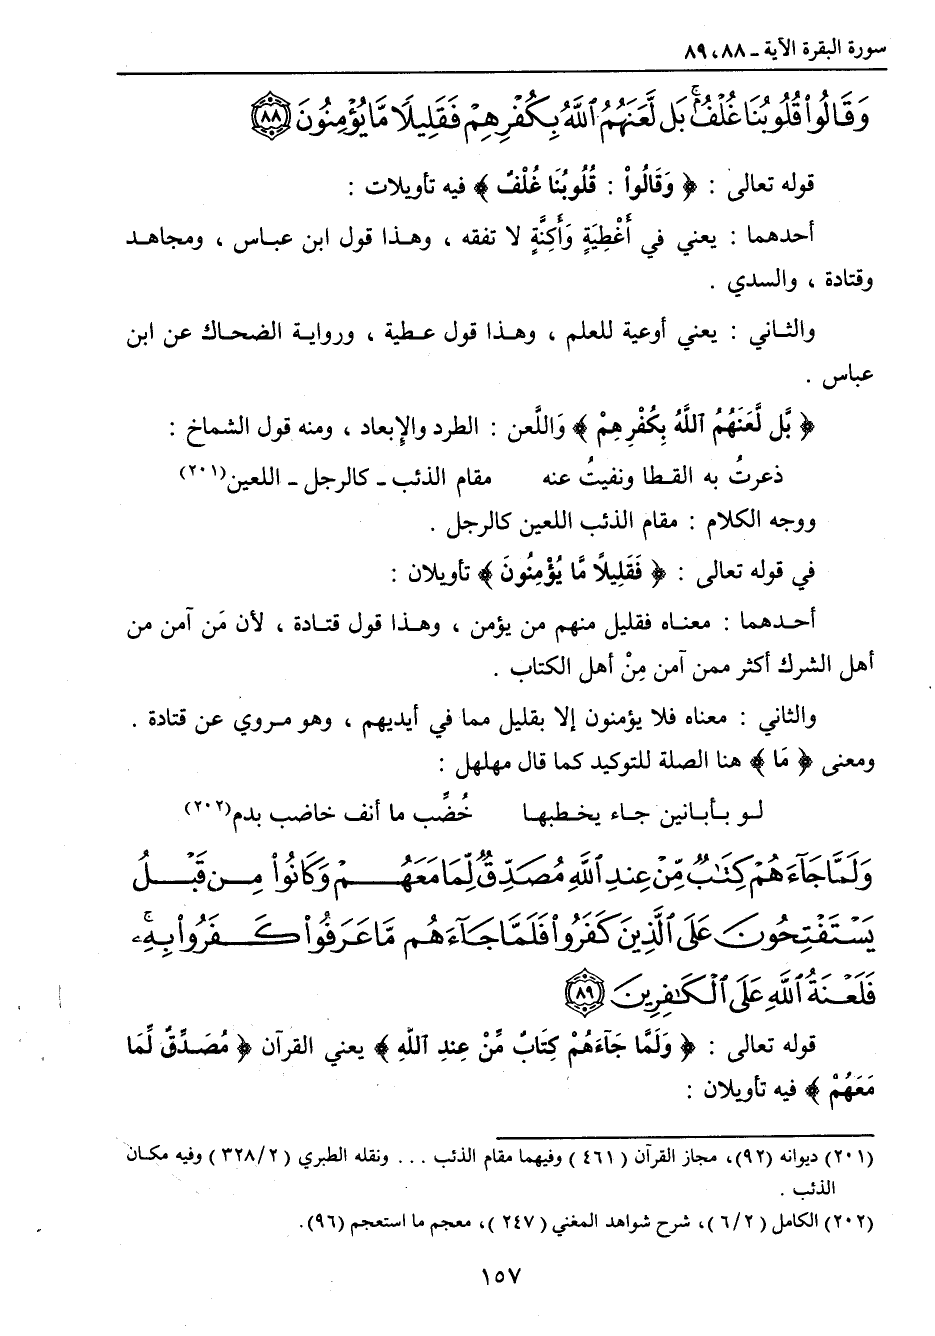 سورة البقرة الآية ـ ٨٨، ٨٩
وَقَالُوا۟ قُلُوبُنَا غُلْفٌۢ ۚ بَل لَّعَنَهُمُ ٱللَّهُ بِكُفْرِهِمْ فَقَلِيلًا مَّا يُؤْمِنُونَ ٨٨
قوله تعالى : ﴿ وَقَالُواْ : قُلُوبُنَا غُلْفٌ ﴾ فيه تأويلات :
أحدهما : يعني في أَغْطِيَةٍ وَأَكِنَّةٍ لا تفقه ، وهذا قول ابن عباس ، ومجاهد
وقتادة ، والسدي .
والثاني : يعني أوعية للعلم ، وهذا قول عطية ، ورواية الضحاك عن ابن
عباس .
﴿ بَّل لَّعَنَهُمُ ٱللَّهُ بِكُفْرِهِمْ ﴾ وَاللَّعن : الطرد والإبعاد ، ومنه قول الشماخ :
ذعرتُ به القطا ونفيتُ عنه مقام الذئب ـ كالرجل ـ اللعين(٢٠١)
ووجه الكلام : مقام الذئب اللعين كالرجل .
في قوله تعالى : ﴿ فَقَلِيلًا مَّا يُؤْمِنُونَ ﴾ تأويلان :
أحدهما : معناه فقليل منهم من يؤمن ، وهذا قول قتادة ، لأن مَن آمن من
أهل الشرك أكثر ممن آمن مِنْ أهل الكتاب .
والثاني : معناه فلا يؤمنون إلا بقليل مما في أيديهم ، وهو مروي عن قتادة .
ومعنى ﴿ مَا ﴾ هنا الصلة للتوكيد كما قال مهلهل :
لو بأبانين جاء يخطبها خُضِّب ما أنف خاضب بدم(٢٠٢)
وَلَمَّا جَآءَهُمْ كِتَٰبٌ مِّنْ عِندِ ٱللَّهِ مُصَدِّقٌ لِّمَا مَعَهُمْ وَكَانُوا۟ مِن قَبْلُ
يَسْتَفْتِحُونَ عَلَى ٱلَّذِينَ كَفَرُوا۟ فَلَمَّا جَآءَهُم مَّا عَرَفُوا۟ كَفَرُوا۟ بِهِۦ ۚ
فَلَعْنَةُ ٱللَّهِ عَلَى ٱلْكَٰفِرِينَ ٨٩
قوله تعالى : ﴿ وَلَمَّا جَآءَهُمْ كِتَابٌ مِّنْ عِندِ ٱللَّهِ ﴾ يعني القرآن ﴿ مُصَدِّقٌ لِّمَا
مَعَهُمْ ﴾ فيه تأويلان :
(٢٠١) ديوانه (٩٢)، مجاز القرآن (٤٦١) وفيهما مقام الذئب ... ونقله الطبري (٣٢٨/٢) وفيه مكان
الذئب .
(٢٠٢) الكامل (٦/٢)، شرح شواهد المغني (٢٤٧)، معجم ما استعجم (٩٦).
١٥٧